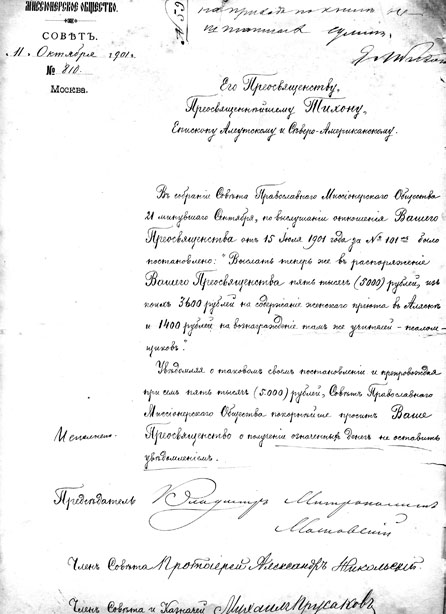 МИССІОНЕРСКОЕ ОБЩЕСТВО.
СОВѢТЪ.
11. Октября 1901 г.
№ 810
Москва.
№ 59
на приходъ по книгѣ не
Его Преосвященству,
Преосвященнѣйшему Тихону,
Епископу Алеутскому и Сѣверо-Американскому.
Въ собраніи Совѣта Православнаго Миссіонерскаго Общества
21 минувшаго Сентября, по выслушаніи отношенія Вашего
Преосвященства отъ 15 Іюля 1901 года за № 101 было
постановлено: "Выслать теперь же въ распоряженіе
Вашего Преосвященства пять тысячъ (5000) рублей, изъ
коихъ 3600 рублей на содержаніе женскаго пріюта въ Аляскѣ
и 1400 рублей на вознагражденіе тамъ же учителей-псалом-
щиковъ".
Увѣдомляя о таковомъ своемъ постановленіи и препровождая
при семъ пять тысячъ (5.000) рублей, Совѣтъ Православнаго
Миссіонерскаго Общества покорнѣйше проситъ Ваше
Преосвященство о полученіи означенныхъ денегъ не оставить
увѣдомленіемъ.
Исполнено.
Предсѣдатель Владимиръ Митрополитъ
Московскій
Членъ Совѣта Протоіерей Александръ Никольскій.
Членъ Совѣта и Казначей Михаилъ Прусаковъ